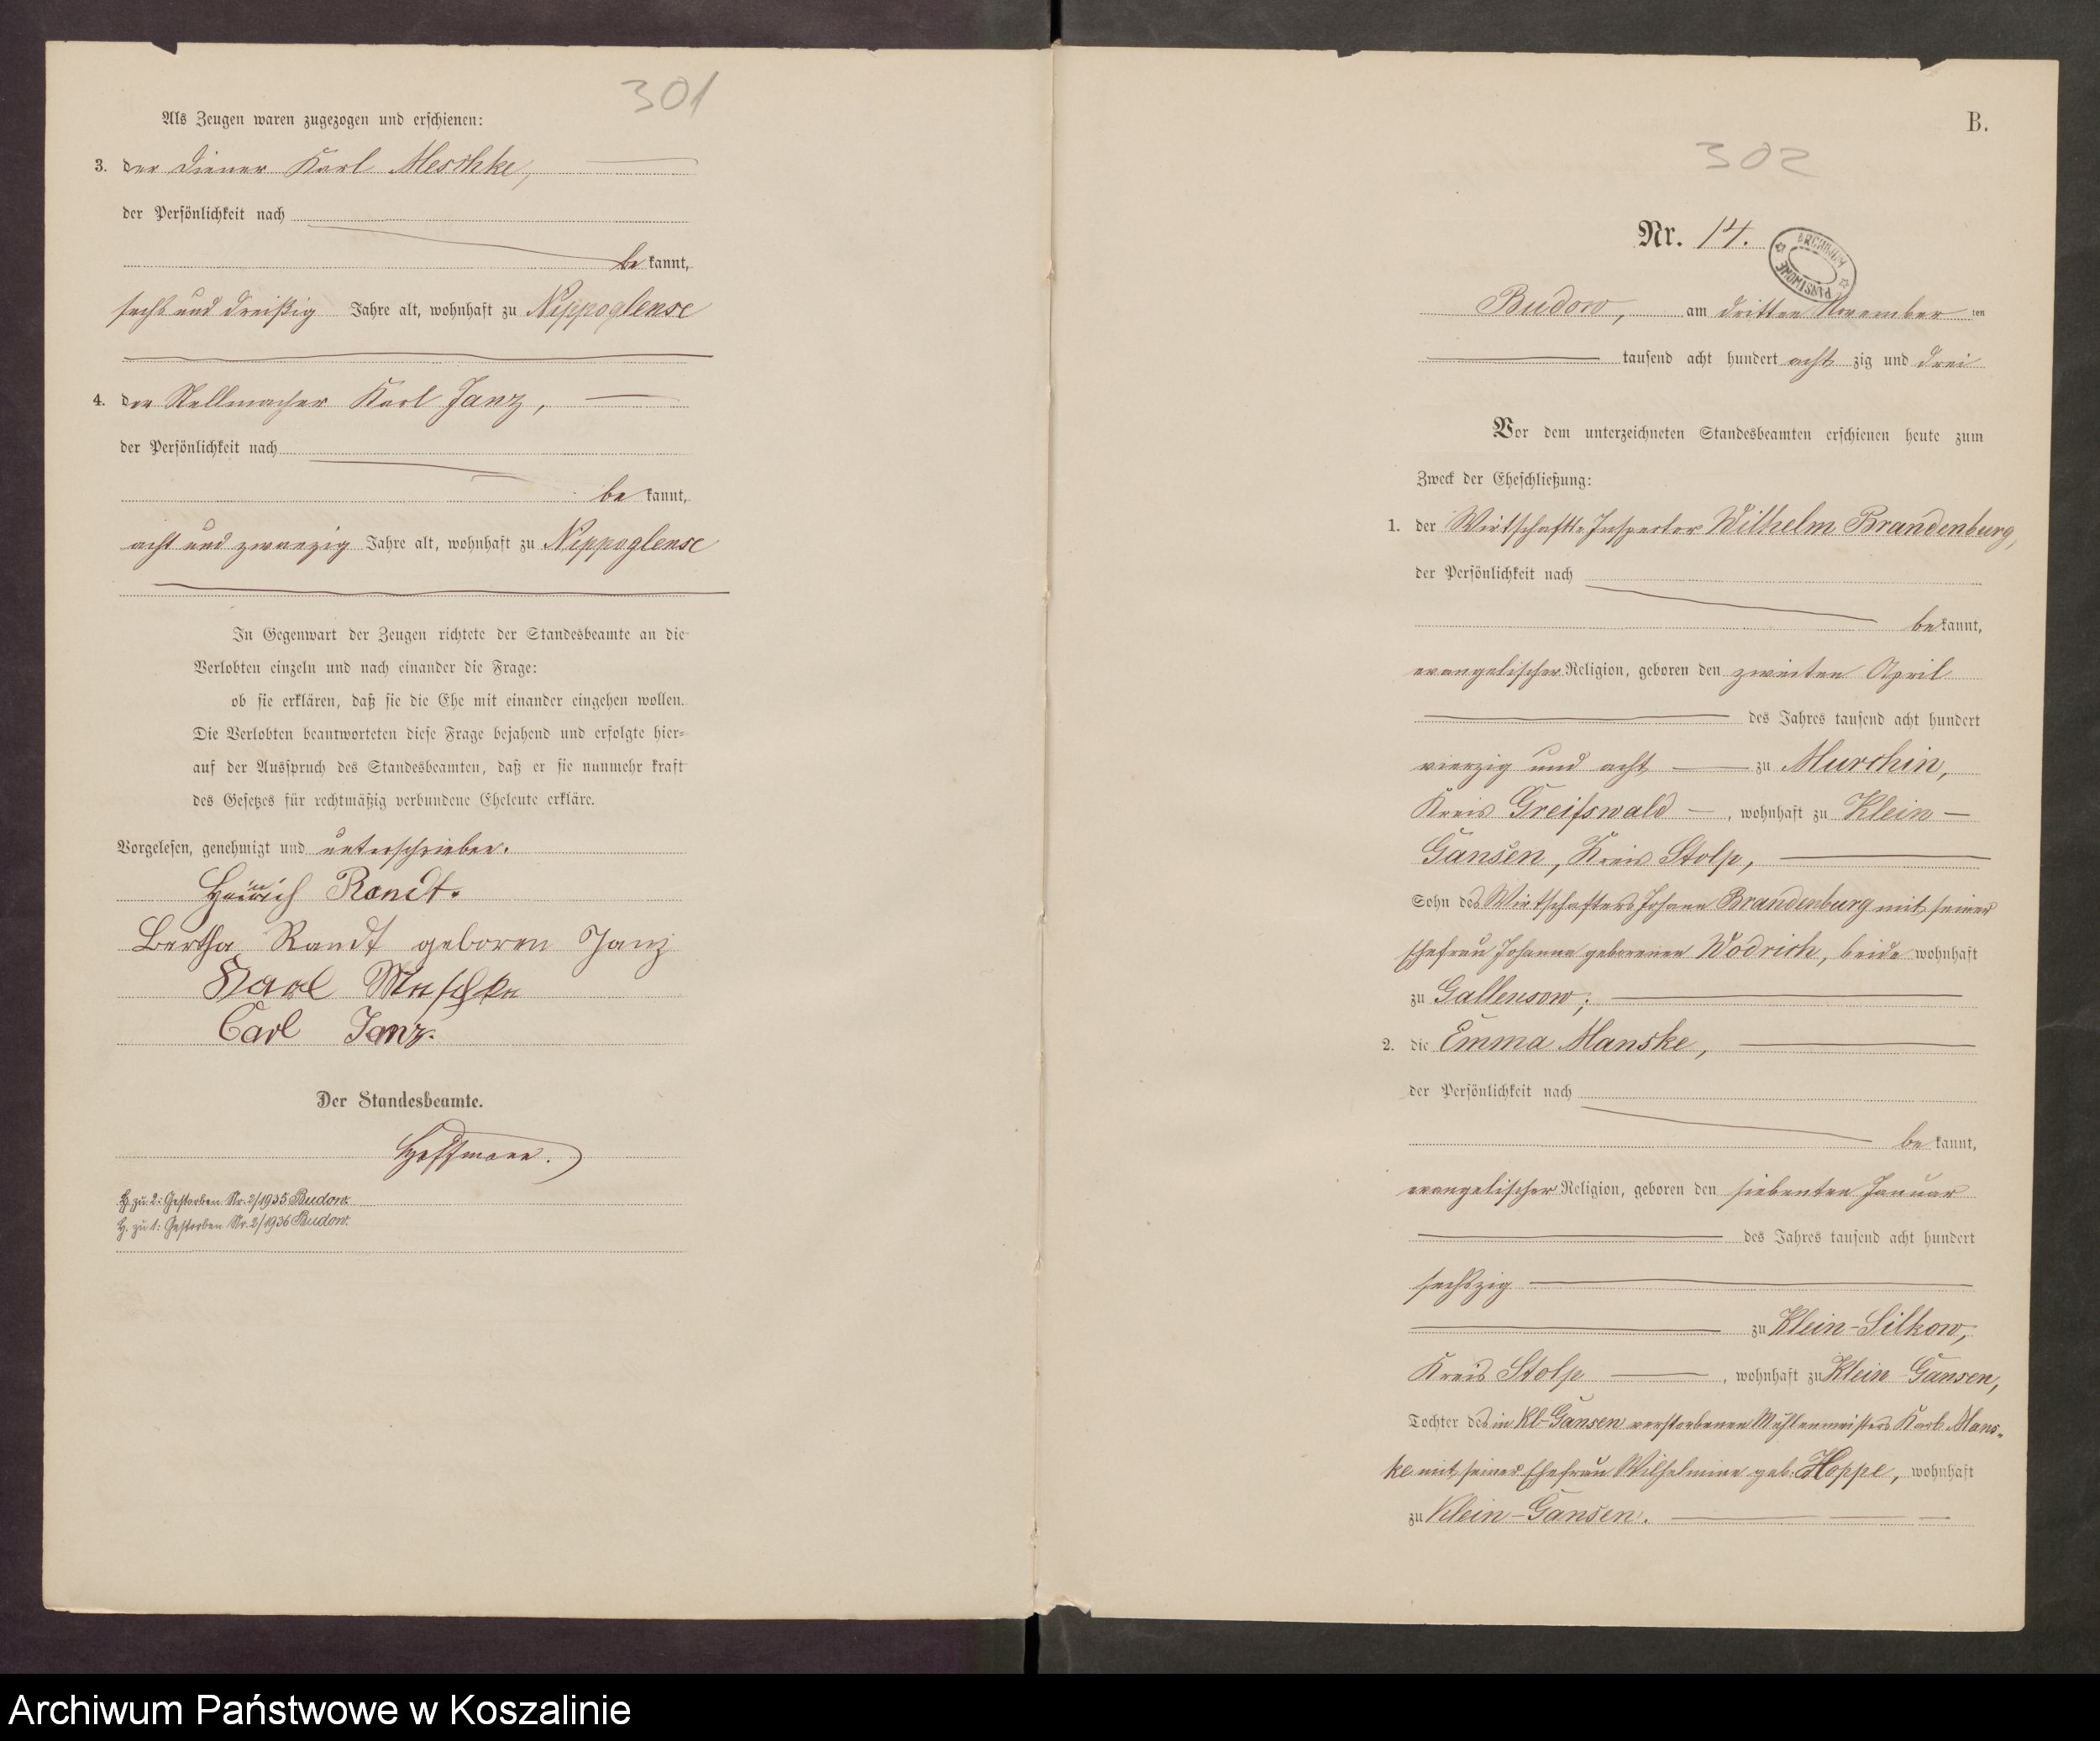 301
Als Zeugen waren zugezogen und erschienen:
3. der Diener Karl Meschke,
der Persönlichkeit nach
be kannt,
sechs und dreißig Jahre alt, wohnhaft zu Nippoglense
4. der Stellmacher Karl Janz,
der Persönlichkeit nach
be kannt,
acht und zwanzig Jahre alt, wohnhaft zu Nippoglense
In Gegenwart der Zeugen richtete der Standesbeamte an die
Verlobten einzeln und nach einander die Frage:
ob sie erklären, daß sie die Ehe mit einander eingehen wollen.
Die Verlobten beantworteten diese Frage bejahend und erfolgte hier=
auf der Ausspruch des Standesbeamten, daß er sie nunmehr kraft
des Gesetzes für rechtmäßig verbundene Eheleute erkläre.
Vorgelesen, genehmigt und unterschrieben.
Heinrich Randt.
Bertha Randt geboren Janz
Karl Meschke
Carl Janz.
Der Standesbeamte.
Hoffmann.
H. zu 2: Gestorben Nr. 2/1935 Budow.
H. zu 1: Gestorben Nr. 2/1936 Budow.
B.
302
Nr. 14.
ARCHIWUM PAŃSTWOWE
Budow, am dritten November ten
tausend acht hundert acht zig und drei
Vor dem unterzeichneten Standesbeamten erschienen heute zum
Zweck der Eheschließung:
1. der Wirtschafts-Inspector Wilhelm Brandenburg,
der Persönlichkeit nach
be kannt,
evangelischer Religion, geboren den zweiten April
des Jahres tausend acht hundert
vierzig und acht zu Murchin,
Kreis Greifswald, wohnhaft zu Klein-
Gansen, Kreis Stolp,
Sohn des Wirtschafters Johann Brandenburg mit seiner
Ehefrau Johanna geborenen Wodrich, beide wohnhaft
zu Gallensow;
2. die Emma Manske,
der Persönlichkeit nach
be kannt,
evangelischer Religion, geboren den siebenten Januar
des Jahres tausend acht hundert
sechszig
zu Klein-Silkow,
Kreis Stolp, wohnhaft zu Klein-Gansen,
Tochter des in Kl-Gansen verstorbenen Mühlenmeisters Karl Mans-
ke mit seiner Ehefrau Wilhelmine geb. Hoppe, wohnhaft
zu Klein-Gansen.
Archiwum Państwowe w Koszalinie